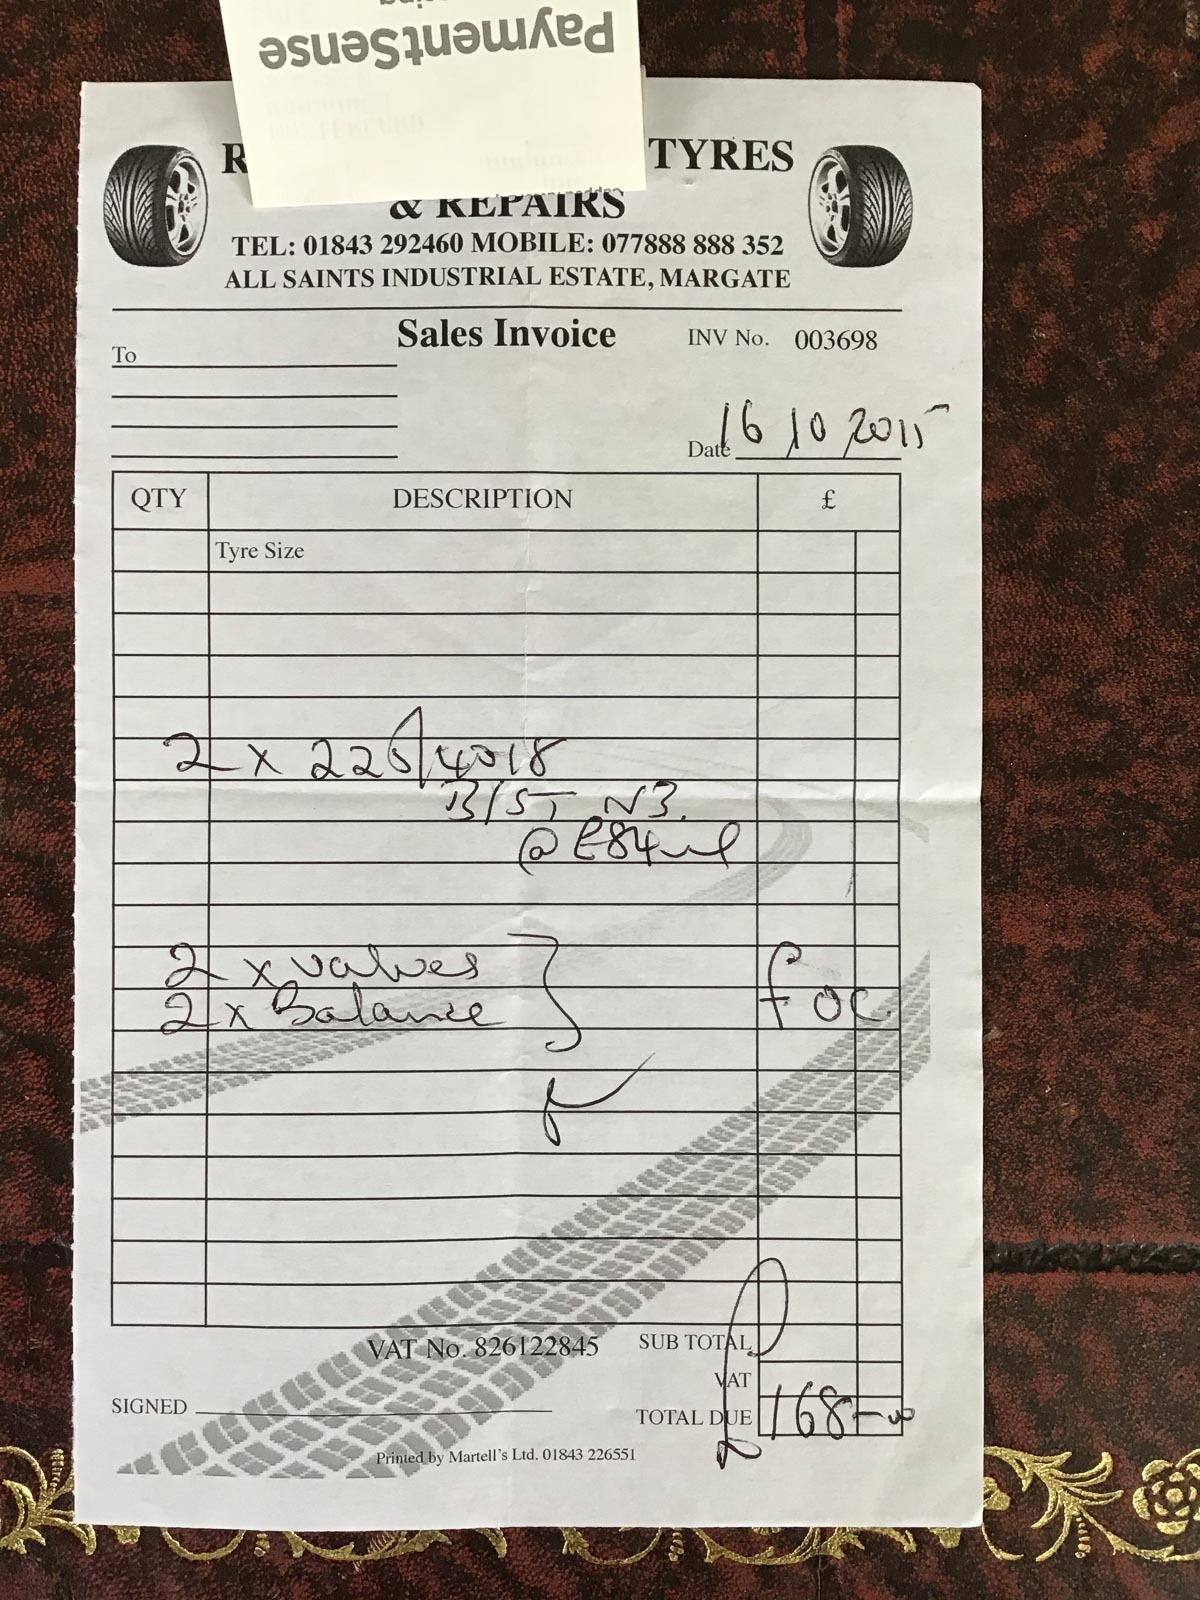 PaymentSense
R TYRES
& REPAIRS
TEL: 01843 292460 MOBILE: 077888 888 352
ALL SAINTS INDUSTRIAL ESTATE, MARGATE
Sales Invoice
INV No. 003698
To
Date 16 10 2015
QTY DESCRIPTION £
Tyre Size
2 x 225/4018
B/ST N3.
@ £84
2 x valves
2 x Balance
foc
VAT No. 826122845
SUB TOTAL
VAT
SIGNED
TOTAL DUE £168-00
Printed by Martell's Ltd. 01843 226551